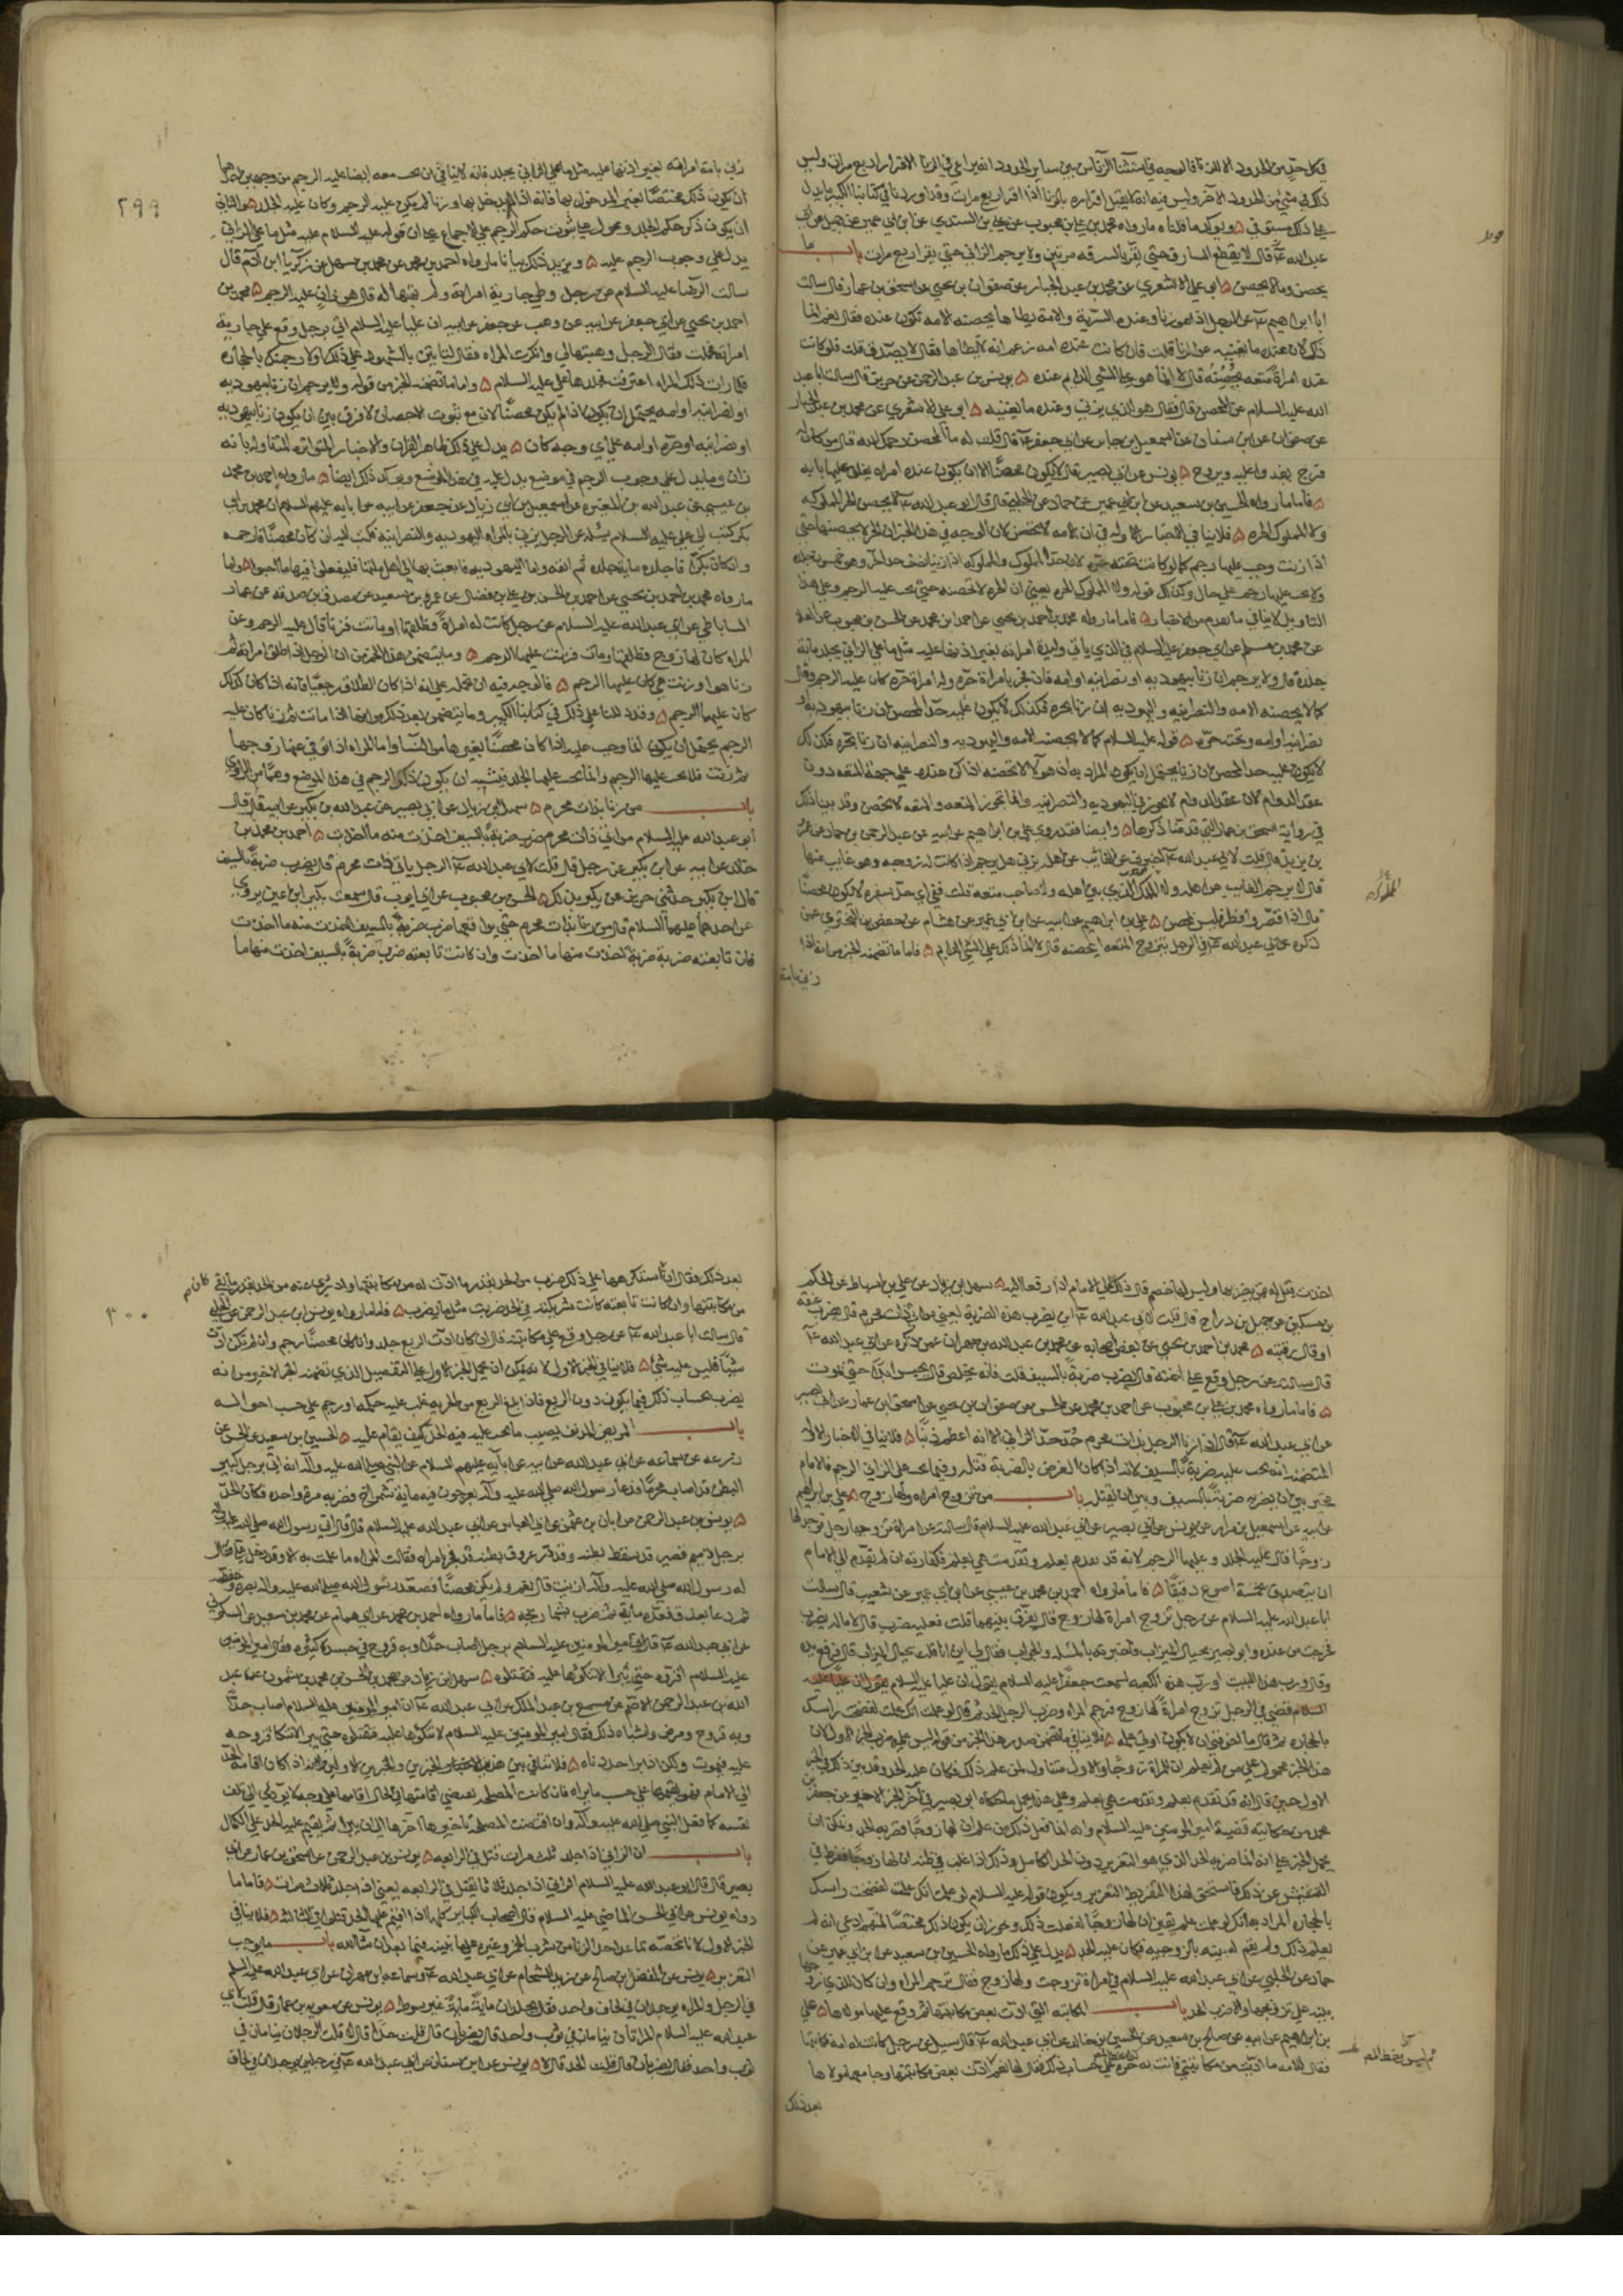 فكل حق من الحدود الا الزنا فالوجه في استثناء الزنا من بين ساير الحدود انه يراعى في الزنا الاقرار اربع مرات وليس
ذلك في شيء من الحدود الآخر وليس فيه انه لا يقبل اقراره بالزنا اذا اقر اربع مرات وقد اوردنا في كتابنا الكبير ما يدل
على ذلك مستوفى ويؤكد ما قلناه ما رواه محمد بن علي بن محبوب عن علي بن السندي عن ابن ابي عمير عن جميل عن ابي
عبد الله ع قال لا يقطع السارق حتى يقر بالسرقه مرتين ولا يرجم الزاني حتى يقر اربع مرات باب ما
يحصن وما لا يحصن ابو علي الاشعري عن محمد بن عبد الجبار عن صفوان بن يحيى عن اسحق بن عمار قال سالت
ابا ابراهيم ع عن الرجل اذا هو زنا وعنده السرية والامة يطاها يحصنه الامه تكون عنده فقال نعم انما
ذلك لان عنده ما يغنيه عن الزنا قلت فان كانت عنده امه زعم انه لا يطاها فقال لا يصدق قلت فان كانت
عنده امراة متعه تحصنه قال لا انما هو على الشي الدايم عنده يونس بن عبد الرحمن عن حريز قال سالت ابا عبد
الله عليه السلام عن المحصن قال فقال هو الذي يزني وعنده ما يغنيه ابو علي الاشعري عن محمد بن عبد الجبار
عن صفوان عن ابن سنان عن اسمعيل بن جابر عن ابي جعفر ع قال قلت له ما المحصن رحمك الله قال من كان له
فرج يغدو عليه ويروح يونس عن ابي بصير قال لا يكون محصنا الا ان يكون عنده امراه يغلق عليها بابه
فاما ما رواه الحسين بن سعيد عن ابن ابي عمير عن حماد عن الحلبي قال قال ابو عبد الله ع لا يحصن الحر المملوكه
ولا المملوك الحره فلا ينافي الاخبار الاوله في ان الامه لا تحصن لان الوجه في هذا الخبر ان الحر لا يحصنها حتى
اذا زنت وجب عليها الرجم كما لو كانت تحته حره لان حد المملوك والمملوكه اذا زنيا نصف حد الحر وهو خمسون جلده
ولا يجب عليهما رجم على حال وكذلك قوله ولا المملوك الحره يعني ان الحره لا تحصنه حتى يجب عليه الرجم وعلى هذا
التاويل لا ينافي ما تقدم من الاخبار فاما ما رواه محمد بن احمد بن يحيى عن احمد بن محمد عن الحسن بن محبوب عن العلا
عن محمد بن مسلم عن ابي جعفر عليه السلام في الذي ياتي وليدة امراته بغير اذنها عليه مثل ما على الزاني يجلد مائة
جلدة قال ولا يرجم ان زنا بيهوديه او نصرانيه او امه فان فجر بامراة حره وله امراة حره كان عليه الرجم وقال
كما لا يحصنه الامه والنصرانيه واليهوديه ان زنا بحره فكذلك لا يكون عليه حد المحصن ان زنا بيهوديه او
نصرانيه او امه وتحته حره قوله عليه السلام كما لا يحصنه الامه واليهوديه والنصرانيه ان زنا بحره فكذلك
لا يكون عليه حد المحصن ان زنا يحتمل ان يكون المراد به ان هولاء لا تحصنه اذا كن عنده على جهة المتعه دون
عقد الدوام لان عقد الدوام لا يجوز في اليهوديه والنصرانيه وانما تجوز المتعه والمتعه لا تحصن وقد بينا ذلك
في رواية اسحق بن عمار التي قدمنا ذكرها وايضا فقد روى علي بن ابراهيم عن ابيه عن عبد الرحمن بن حماد عن عمر
بن يزيد قال قلت لابي عبد الله ع اخبرني عن الغائب عن اهله يزني هل يرجم اذا كانت له زوجه وهو غايب عنها
قال لا يرجم الغايب عن اهله ولا المملك الذي لم يبن باهله ولا صاحب متعه قلت ففي اي حد سفره لا يكون محصنا
قال اذا قصر وافطر فليس بمحصن علي بن ابراهيم عن ابيه عن ابن ابي عمير عن هشام عن حفص بن البختري عمن
ذكره عن ابي عبد الله ع في الرجل يتزوج المتعه ايحصنه قال لا انما ذلك على الشي الدايم فاما ما تضمنه الخبر من انه اذا
زنى بامة
٢٩٩
زنى بامة امراته بغير اذنها عليه مثل ما على الزاني يجلد فانه لا ينافي ان يجب معه ايضا عليه الرجم من وجهين احدهما
ان يكون ذلك مختصا بغير المدخول بها فانه اذا لم يدخل بها وزنا لم يكن عليه الرجم وكان عليه الجلد والثاني
ان يكون ذكر حكم الجلد وعول في ثبوت حكم الرجم على الاجماع على ان قوله عليه السلام عليه مثل ما على الزاني
يدل على وجوب الرجم عليه ويزيد ذلك بيانا ما رواه احمد بن محمد عن محمد بن سهل عن زكريا بن آدم قال
سالت الرضا عليه السلام عن رجل وطي جارية امراته ولم تهبها له قال هو زان عليه الرجم محمد بن
احمد بن يحيى عن ابي جعفر عن ابيه عن وهب عن جعفر عن ابيه ان عليا عليه السلام اتي برجل وقع على جارية
امراته فحملت فقال الرجل وهبتها لي وانكرت المراه فقال لتاتيني بالشهود على ذلك او لارجمنك بالحجاره
فلما رات ذلك المراه اعترفت فجلدها علي عليه السلام واما ما تضمنه الخبر من قوله ولا يرجم ان زنا بيهوديه
او نصرانيه او امه يحتمل ان يكون اذا لم يكن محصنا لان مع ثبوت الاحصان لا فرق بين ان يكون زنا بيهوديه
او نصرانيه او حره او امه على اي وجه كان يدل على ذلك ظاهر القران والاخبار المتواتره المتناوله بانه
زان وما يدل على وجوب الرجم في موضع يدل عليه في هذا الموضع ويؤكد ذلك ايضا ما رواه احمد بن محمد
بن عيسى عن عبد الله بن المغيره عن اسمعيل بن ابي زياد عن جعفر عن ابيه عن ابايه عليهم السلام ان محمد بن ابي
بكر كتب الى علي عليه السلام يسئله عن الرجل يزني بالمراه اليهوديه والنصرانيه فكتب اليه ان كان محصنا فارجمه
وان كان بكرا فاجلده مايه جلده ثم انفه واما اليهوديه فابعث بها الى اهل ملتها فليفعلوا فيها ما احبوا واما
ما رواه محمد بن احمد بن يحيى عن احمد بن الحسن بن علي بن فضال عن عمرو بن سعيد عن مصدق بن صدقه عن عمار
الساباطي عن ابي عبد الله عليه السلام عن رجل كانت له امراة فطلقها او ماتت فزنا قال عليه الرجم وعن
المراه كان لها زوج فطلقها او مات فزنت عليها الرجم وما يتضمن هذا الخبر من ان الرجل اذا طلق امراته ثم
زنا هو او زنت هي كان عليهما الرجم فالوجه فيه ان نحمله على انه اذا كان الطلاق رجعيا فانه اذا كان كذلك
كان عليهما الرجم وقد دللنا على ذلك في كتابنا الكبير وما يتضمن بعد ذلك من انها اذا ماتت ثم زنا كان عليه
الرجم يحتمل ان يكون انما وجب عليه اذا كان محصنا بغيرها من النساء واما المراه اذا توفي عنها زوجها
ثم زنت فلا يجب عليها الرجم وانما يجب عليها الجلد فيشبه ان يكون ذكر الرجم في هذا الموضع وهما من الراوي
باب من زنا بذات محرم سهل بن زياد عن ابي بصير عن عبد الله بن بكير عن ابيه قال قال
ابو عبد الله عليه السلام من اتى ذات محرم ضرب ضربة بالسيف اخذت منه ما اخذت احمد بن محمد بن
خالد عن ابيه عن ابن بكير عن رجل قال قلت لابي عبد الله ع الرجل ياتي ذات محرم قال يضرب ضربة بالسيف
قال ابن بكير حدثني حريز عن بكير بذلك الحسن بن محبوب عن ابي ايوب قال سمعت بكير بن اعين يروي
عن احدهما عليهما السلام قال من زنا بذات محرم حتى يواقعها ضرب ضربة بالسيف اخذت منه ما اخذت
فان تابعته ضربت ضربة اخذت منها ما اخذت وان كانت تابعته ضربت ضربة بالسيف اخذت منها ما
اخذت قيل له فمن يضربهما وليس لهما خصم قال ذلك الى الامام اذا رفعا اليه سهل بن زياد عن علي بن اسباط عن الحكم
بن مسكين عن جميل بن دراج قال قلت لابي عبد الله ع اين يضرب هذه الضربة يعني من اتى ذات محرم قال يضرب عنقه
او قال رقبته محمد بن احمد بن يحيى عن بعض اصحابه عن محمد بن عبد الله بن مهران عمن ذكره عن ابي عبد الله ع
قال سالته عن رجل وقع على اخته قال يضرب ضربة بالسيف قلت فانه يخلص قال يحبس ابدا حتى يموت
فاما ما رواه محمد بن علي بن محبوب عن احمد بن محمد عن الحسن عن صفوان بن يحيى عن اسحق بن عمار عن ابي بصير
عن ابي عبد الله ع قال اذا زنا الرجل بذات محرم حد حد الزاني الا انه اعظم ذنبا فلا ينافي الاخبار الاولى
المتضمنه انه يجب عليه ضربة بالسيف لانه اذا كان الغرض بالضربة قتله وفيما يجب على الزاني الرجم فالامام
مخير بين ان يضربه ضربة بالسيف وبين ان يقتله باب من تزوج امراه ولها زوج علي بن ابراهيم
عن ابيه عن اسمعيل بن مرار عن يونس عن ابي بصير عن ابي عبد الله عليه السلام قال سالته عن امراة تزوجها رجل فوجد لها
زوجا قال عليه الجلد وعليها الرجم لانه قد تقدم بعلم وتقدمت هي بعلم فكفارته ان لم يقدم الى الامام
ان يتصدق بخمسة اصوع دقيقا فاما ما رواه احمد بن محمد بن عيسى عن ابن ابي عمير عن شعيب قال سالت
ابا عبد الله عليه السلام عن رجل تزوج امراة لها زوج قال يفرق بينهما قلت فعليه ضرب قال لا ما له يضرب
فخرجت من عنده وابو بصير بحيال الميزاب فاخبرته بالمسئله والجواب فقال لي اين انا قلت بحيال الميزاب قال فرفع يده
وقال ورب هذا البيت او رب هذه الكعبه لسمعت جعفرا عليه السلام يقول ان عليا عليه السلام
قضى في الرجل تزوج امراة لها زوج فرجم المراه وضرب الرجل الحد ثم قال لو علمت انك علمت لفضخت راسك
بالحجاره ثم قال ما اخوفني ان لا يكون اوتي علمه فلا ينافي ما تضمن صدر هذا الخبر من قوله ليس عليه ضرب الخبر الاول لان
هذا الخبر محمول على من لم يعلم ان للمراة زوجا والاول متناول لمن علم ذلك فكان عليه الحد وقد بين ذلك في الخبر
الاول حين قال انه قد تقدم بعلم وتقدمت هي بعلم وعلى هذا يحمل ما حكاه ابو بصير في آخر الخبر الاخير عن جعفر بن
محمد من حكايته قضية امير المومنين عليه السلام وانه انما فعل ذلك بمن علم ان لها زوجا فضربه الحد ويمكن ان
يحمل الخبر على انه انما ضربه الحد الذي هو التعزير دون الحد الكامل وذلك اذا غلب في ظنه ان لها زوجا ففرط في
التفتيش عن ذلك فاستحق لهذا التفريط التعزير ويكون قوله عليه السلام لو علمت انك علمت لفضخت راسك
بالحجاره المراد به انك لو علمت علم يقين ان لها زوجا لفعلت ذلك ويجوز ان يكون ذلك مختصا بالمتهم ادعى انه لم
يعلم ذلك ولم يقم له بينه بالزوجيه فكان عليه الحد يدل على ذلك ما رواه الحسين بن سعيد عن ابن ابي عمير عن
حماد عن الحلبي عن ابي عبد الله عليه السلام في امراة تزوجت ولها زوج فقال ترجم المراه وان كان للذي تزوجها
بينه على تزويجها والا ضرب الحد باب المكاتبه التي ادت بعض مكاتبتها ثم وقع عليها مولاها علي
بن ابراهيم عن ابيه عن صالح بن سعيد عن الحسين بن خالد عن ابي عبد الله ع قال سئل عن رجل كانت له امه فكاتبها
فقال الامه ما اديت من مكاتبتي فانا به حره على حساب ذلك فقال لها نعم فادت بعض مكاتبتها وجامعها مولاها
بعد ذلك
٣٠٠
بعد ذلك فقال ان استكرهها على ذلك ضرب من الحد بقدر ما ادت له من مكاتبتها وادرئ عنه من الحد بقدر ما بقي
من مكاتبتها وان كانت تابعته كانت شريكته في الحد ضربت مثل ما يضرب فاما ما رواه يونس بن عبد الرحمن عن الحلبي
قال سالت ابا عبد الله ع عن رجل وقع على مكاتبته قال ان كانت ادت الربع جلد وان كان محصنا رجم وان لم تكن ادت
شيئا فليس عليه شئ فلا ينافي الخبر الاول لانه يمكن ان نحمل الخبر الاول على التفصيل الذي تضمنه الخبر الاخير من انه
يضرب بحساب ذلك فيما يكون دون الربع فاذا بلغ الربع من الحريه غلب عليه حكمه او رجم على حسب احواله
باب المريض المدنف يصيب ما يجب عليه فيه الحد كيف يقام عليه الحسين بن سعيد عن الحسن عن
زرعه عن سماعه عن ابي عبد الله عن ابيه عن آبايه عليهم السلام عن النبي صلى الله عليه وآله انه اتي برجل كبير
البطن قد اصاب محرما فدعا رسول الله صلى الله عليه وآله بعرجون فيه مايه شمراخ فضربه مرة واحده فكان الحد
يونس بن عبد الرحمن عن ابان بن عثمن عن ابي العباس عن ابي عبد الله عليه السلام قال اتي رسول الله صلى الله عليه وآله
برجل دميم قصير قد سقى بطنه وقد در عروق بطنه قد فجر بامراه فقالت المراه ما علمت به الا وقد دخل علي فقال
له رسول الله صلى الله عليه وآله ازنيت قال نعم ولم يكن محصنا فصعد رسول الله صلى الله عليه وآله بصره وخفضه
ثم دعا بعذق فعده مايه ثم ضربه بشماريخه فاما ما رواه احمد بن محمد عن ابي همام عن محمد بن سعيد عن السكوني
عن ابي عبد الله ع قال اتي امير المومنين عليه السلام برجل اصاب حدا وبه قروح في جسده كثيره فقال امير المومنين
عليه السلام اقروه حتى تبرا لا تنكؤها عليه فتقتلوه سهل بن زياد عن محمد بن الحسن بن شمون عن عبد
الله بن عبد الرحمن الاصم عن مسمع بن عبد الملك عن ابي عبد الله ع ان امير المومنين عليه السلام اصاب حدا
وبه قروح ومرض واشباه ذلك فقال امير المومنين عليه السلام لا تنكؤها عليه فتقتلوه حتى يبرا لا تنكا قروحه
عليه فيموت ولكن اذا برا حددناه فلا تنافي بين هذين الخبرين والخبرين الاولين لانه اذا كان اقامة الحد
الى الامام فهو يقيمها على حسب ما يراه فان كانت المصلحه تقتضي اقامتها في الحال اقامها على وجه لا يؤدي الى تلف
نفسه كما فعل النبي صلى الله عليه وآله وان اقتضت المصلحة تاخيرها آخرها الى ان يبرا ثم يقيم عليه الحد على الكمال
باب ان الزاني اذا جلد ثلث مرات قتل في الرابعه يونس بن عبد الرحمن عن اسحق بن عمار عن ابي
بصير قال قال ابو عبد الله عليه السلام الزاني اذا جلد ثلاثا يقتل في الرابعه يعني اذا جلد ثلاث مرات فاما ما
رواه يونس عن ابي الحسن الماضي عليه السلام قال اصحاب الكباير كلها اذا اقيم عليهم الحد قتلوا في الثالثه فلا ينافي
الخبر الاول لانا نخصه بما عدا حد الزنا من شرب الخمر وغيره على ما نبينه فيما بعد ان شا الله باب ما يوجب
التعزير يونس عن المفضل بن صالح عن زيد الشحام عن ابي عبد الله ع وسماعه بن مهران عن ابي عبد الله عليه السلم
في الرجل والمراه يوجدان في لحاف واحد فقال يجلدان ماية ماية غير سوط يونس عن معويه بن عمار قال قلت لابي
عبد الله عليه السلام المراتان ينامان في ثوب واحد قال يضربان قال قلت حدا قال لا قلت الرجلان ينامان في
ثوب واحد فقال يضربان قال قلت الحد قال لا يونس عن ابن سنان عن ابي عبد الله ع في رجلين يوجدان في لحاف